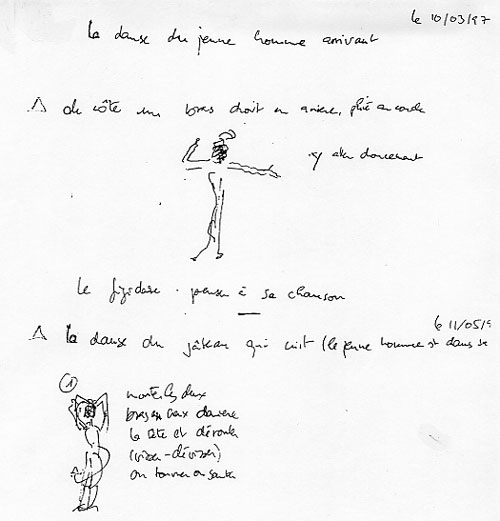 le 10/03/97
la danse du jeune homme arrivant
de côté un bras droit en arrière, plié au coude
y aller doucement
Le frigidaire . pense à sa chanson
le 11/05/9
la danse du gâteau qui cuit (le jeune homme est dans sa
1
monte les deux
bras en arrière
la tête et déroule
(visser-dévisser)
on tourne on saute